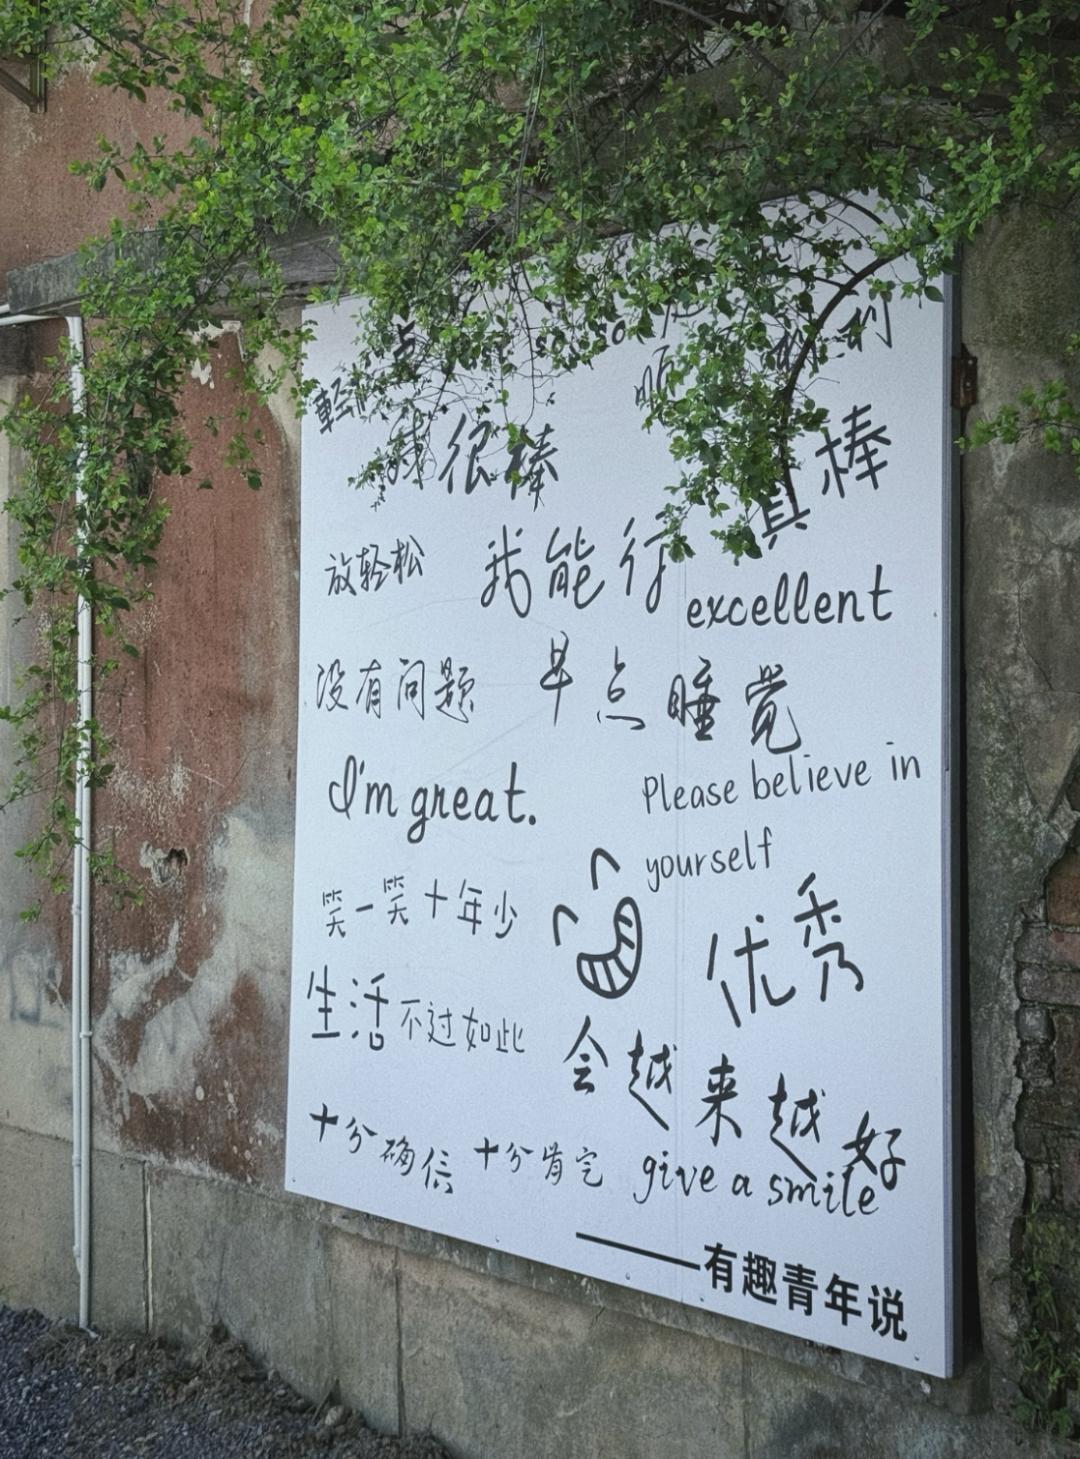 我很棒
真棒
放轻松
我能行
excellent
没有问题
早点睡觉
I'm great.
Please believe in
yourself
笑一笑十年少
优秀
生活不过如此
会越来越好
十分确信
十分肯定
give a smile
——有趣青年说